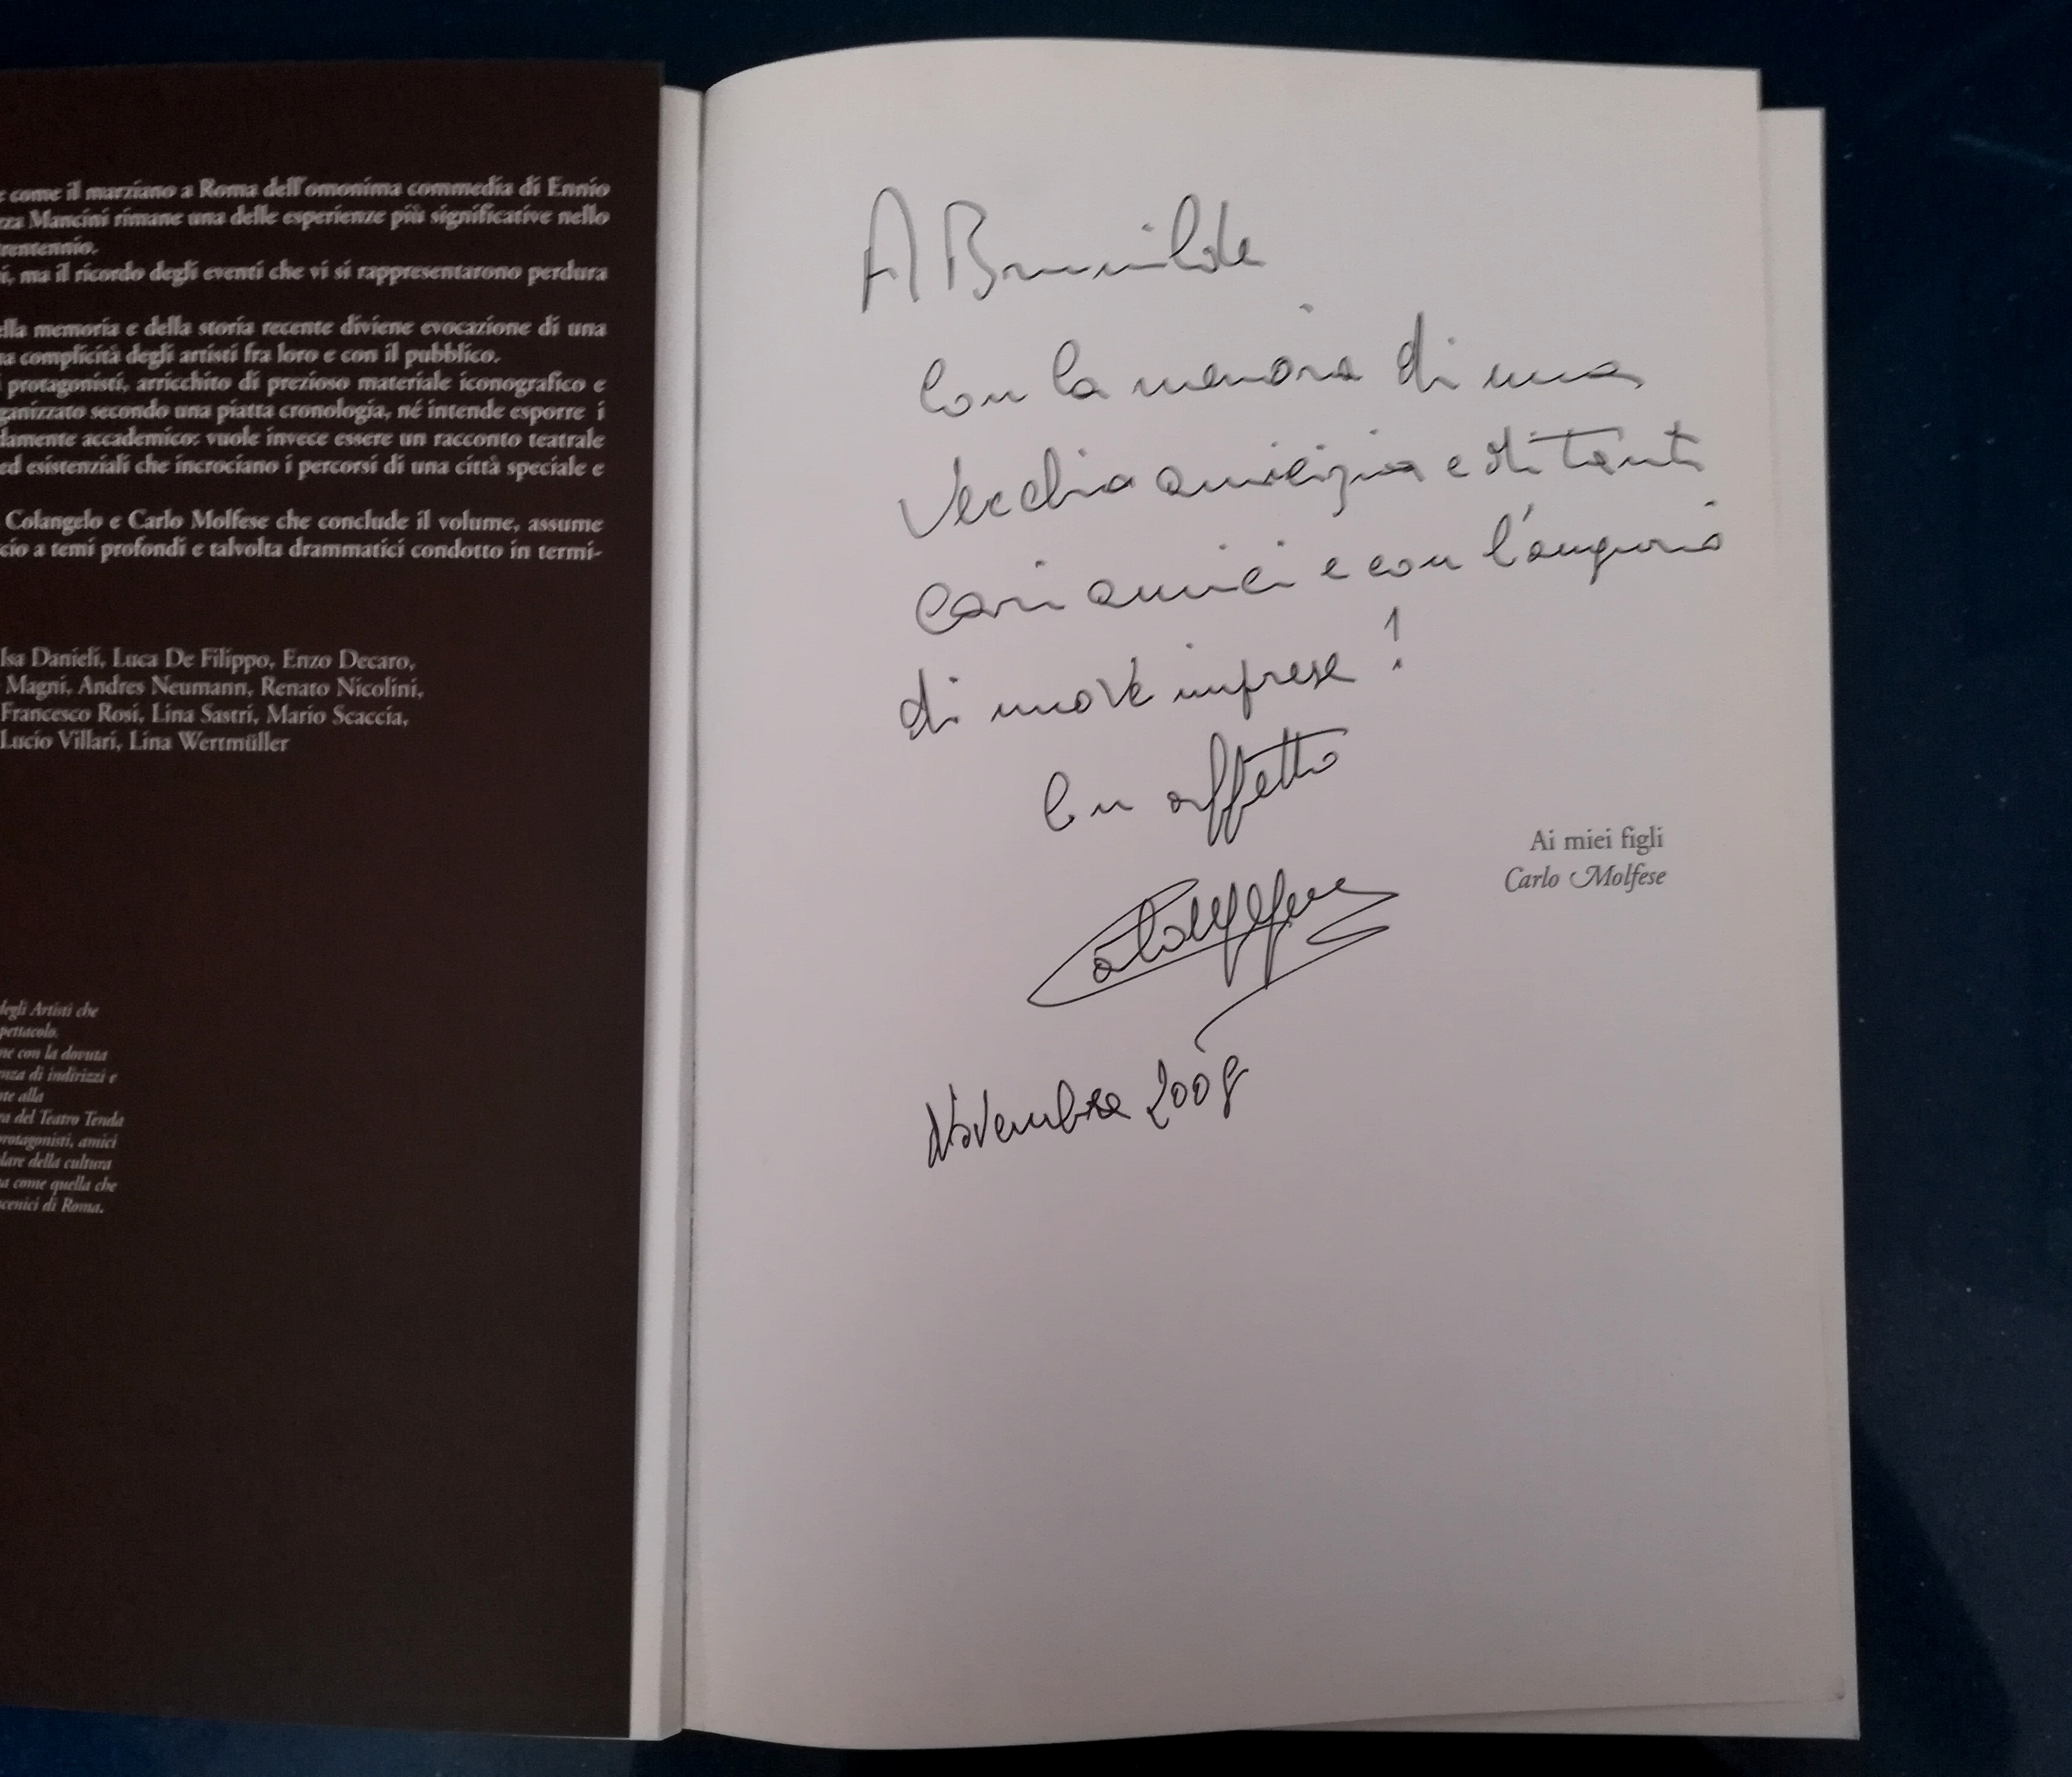 come il marziano a Roma dell'omonima commedia di Ennio
zza Mancini rimane una delle esperienze più significative nello
rentennio.
i, ma il ricordo degli eventi che vi si rappresentarono perdura
lla memoria e della storia recente diviene evocazione di una
a complicità degli artisti fra loro e con il pubblico.
i protagonisti, arricchito di prezioso materiale iconografico e
ganizzato secondo una piatta cronologia, né intende esporre i
lamente accademico: vuole invece essere un racconto teatrale
ed esistenziali che incrociano i percorsi di una città speciale e
Colangelo e Carlo Molfese che conclude il volume, assume
cio a temi profondi e talvolta drammatici condotto in termi-
Isa Danieli, Luca De Filippo, Enzo Decaro,
Magni, Andres Neumann, Renato Nicolini,
Francesco Rosi, Lina Sastri, Mario Scaccia,
Lucio Villari, Lina Wertmüller
degli Artisti che
pettacolo.
ne con la dovuta
nza di indirizzi e
te alla
ra del Teatro Tenda
rotagonisti, amici
lare della cultura
a come quella che
cenici di Roma.
A Brunilde
Con la memoria di una
Vecchia amicizia e di tanti
cari amici e con l'augurio
di nuove imprese!
Con affetto
Carlo Molfese
Novembre 2008
Ai miei figli
Carlo Molfese